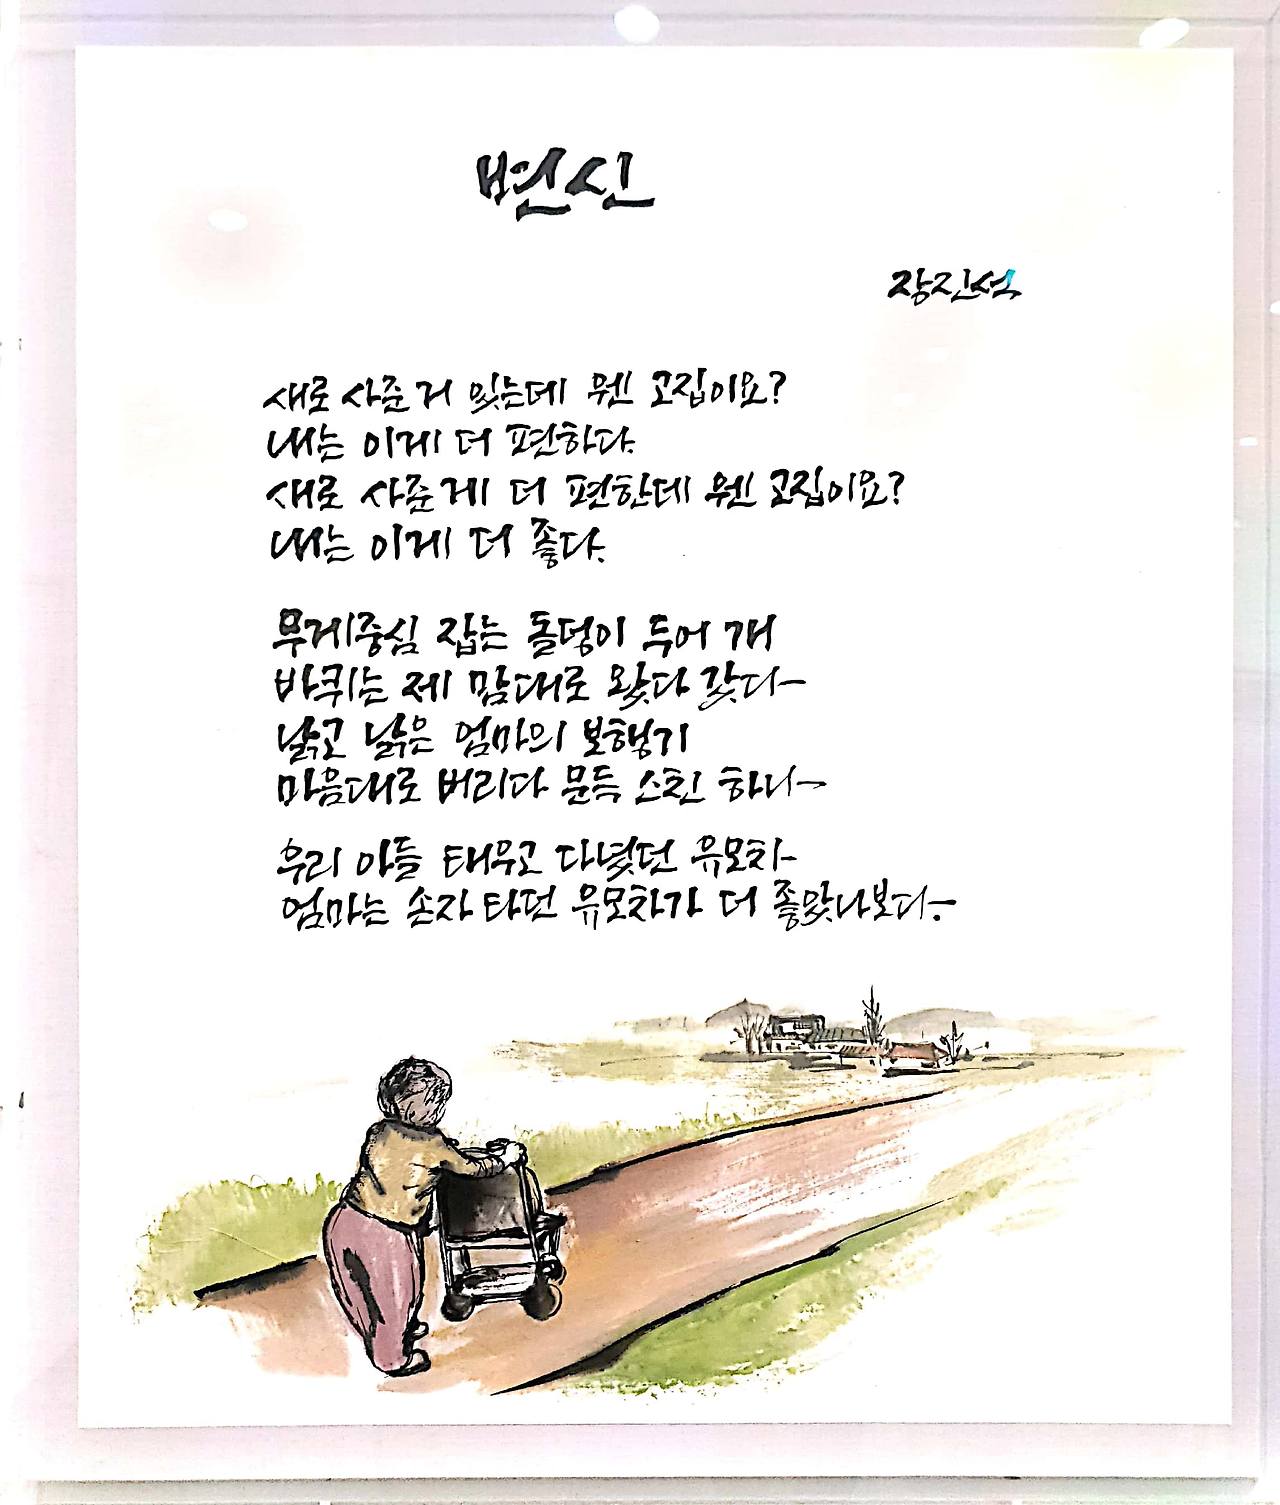 변신
장진석
새로 사준 거 있는데 웬 고집이요?
내는 이게 더 편하다.
새로 사준 게 더 편한데 웬 고집이요?
내는 이게 더 좋다.
무게중심 잡는 돌덩이 두어 개
바퀴는 제 맘대로 왔다 갔다~
낡고 낡은 엄마의 보행기
마음대로 버리다 문득 스친 하나~
우리 아들 태우고 다녔던 유모차~
엄마는 손자 타던 유모차가 더 좋았나보다~.